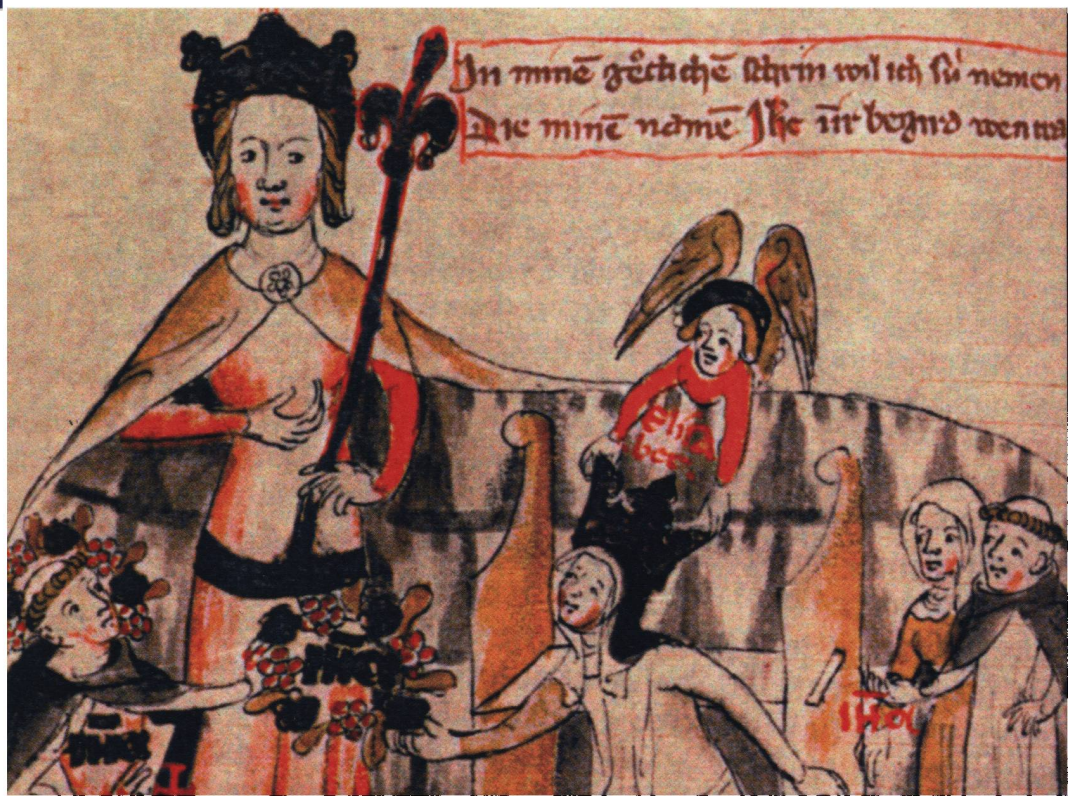 In minē goͤtlichē schrin wil ich sú nemen
Die minē namē Jhc īir begird wen tra
elisa
bet